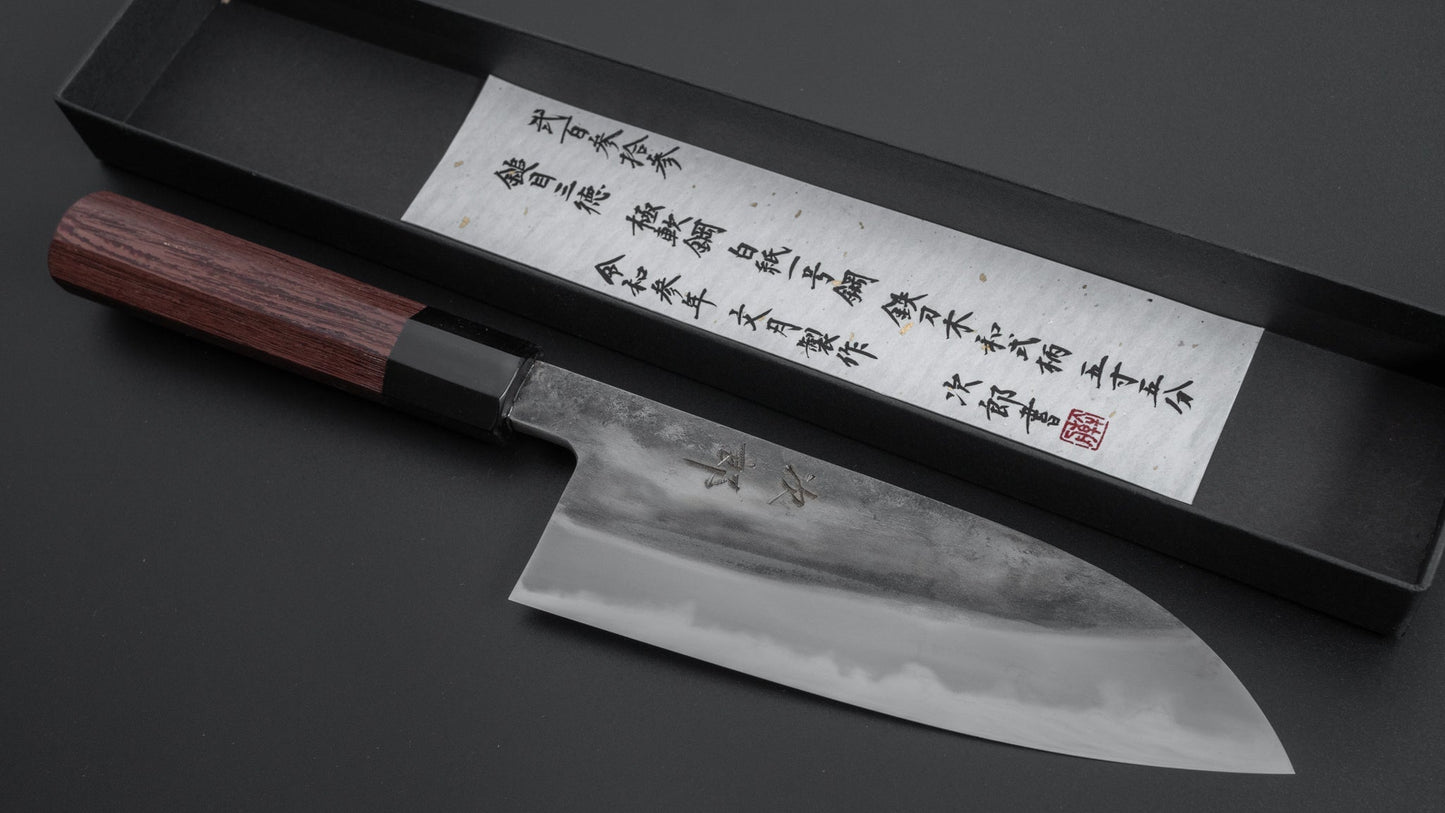 弐百参拾参
鎚目三徳 極軟鋼 白紙一号鋼 鉄刃木和式柄 五寸五分
令和参年 文月製作 次郎書